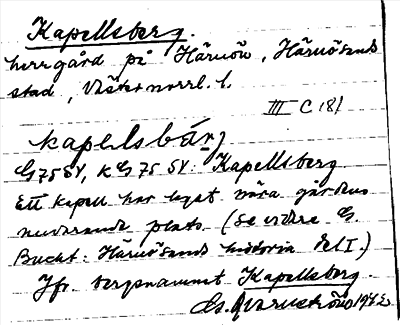 Kapellsberg.
herrgård på Härnön, Härnösands
stad, Västernorrl. l.
III C 18/
kapelsbärj
G75SV, KG 75 SV: Kapellsberg
Ett kapell har legat nära gårdens
nuvarande plats (se vidare G.
Bucht: Härnösands historia del I.)
Jfr. bergnamnet Kapellsberg.
1962